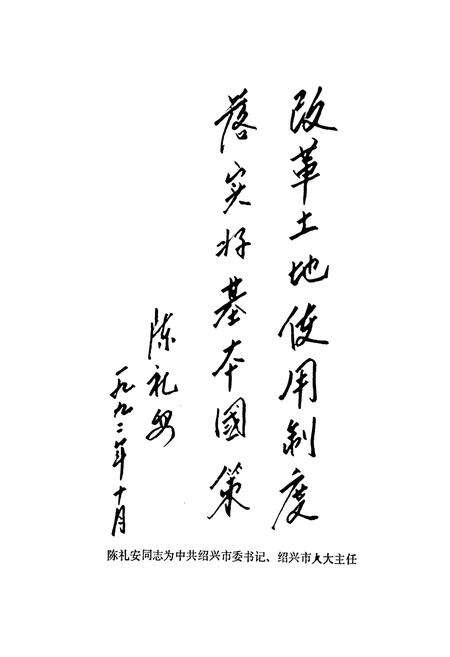 改革土地使用制度
落实好基本國策
陈礼安
一九九二年十月
陈礼安同志为中共绍兴市委书记、绍兴市人大主任